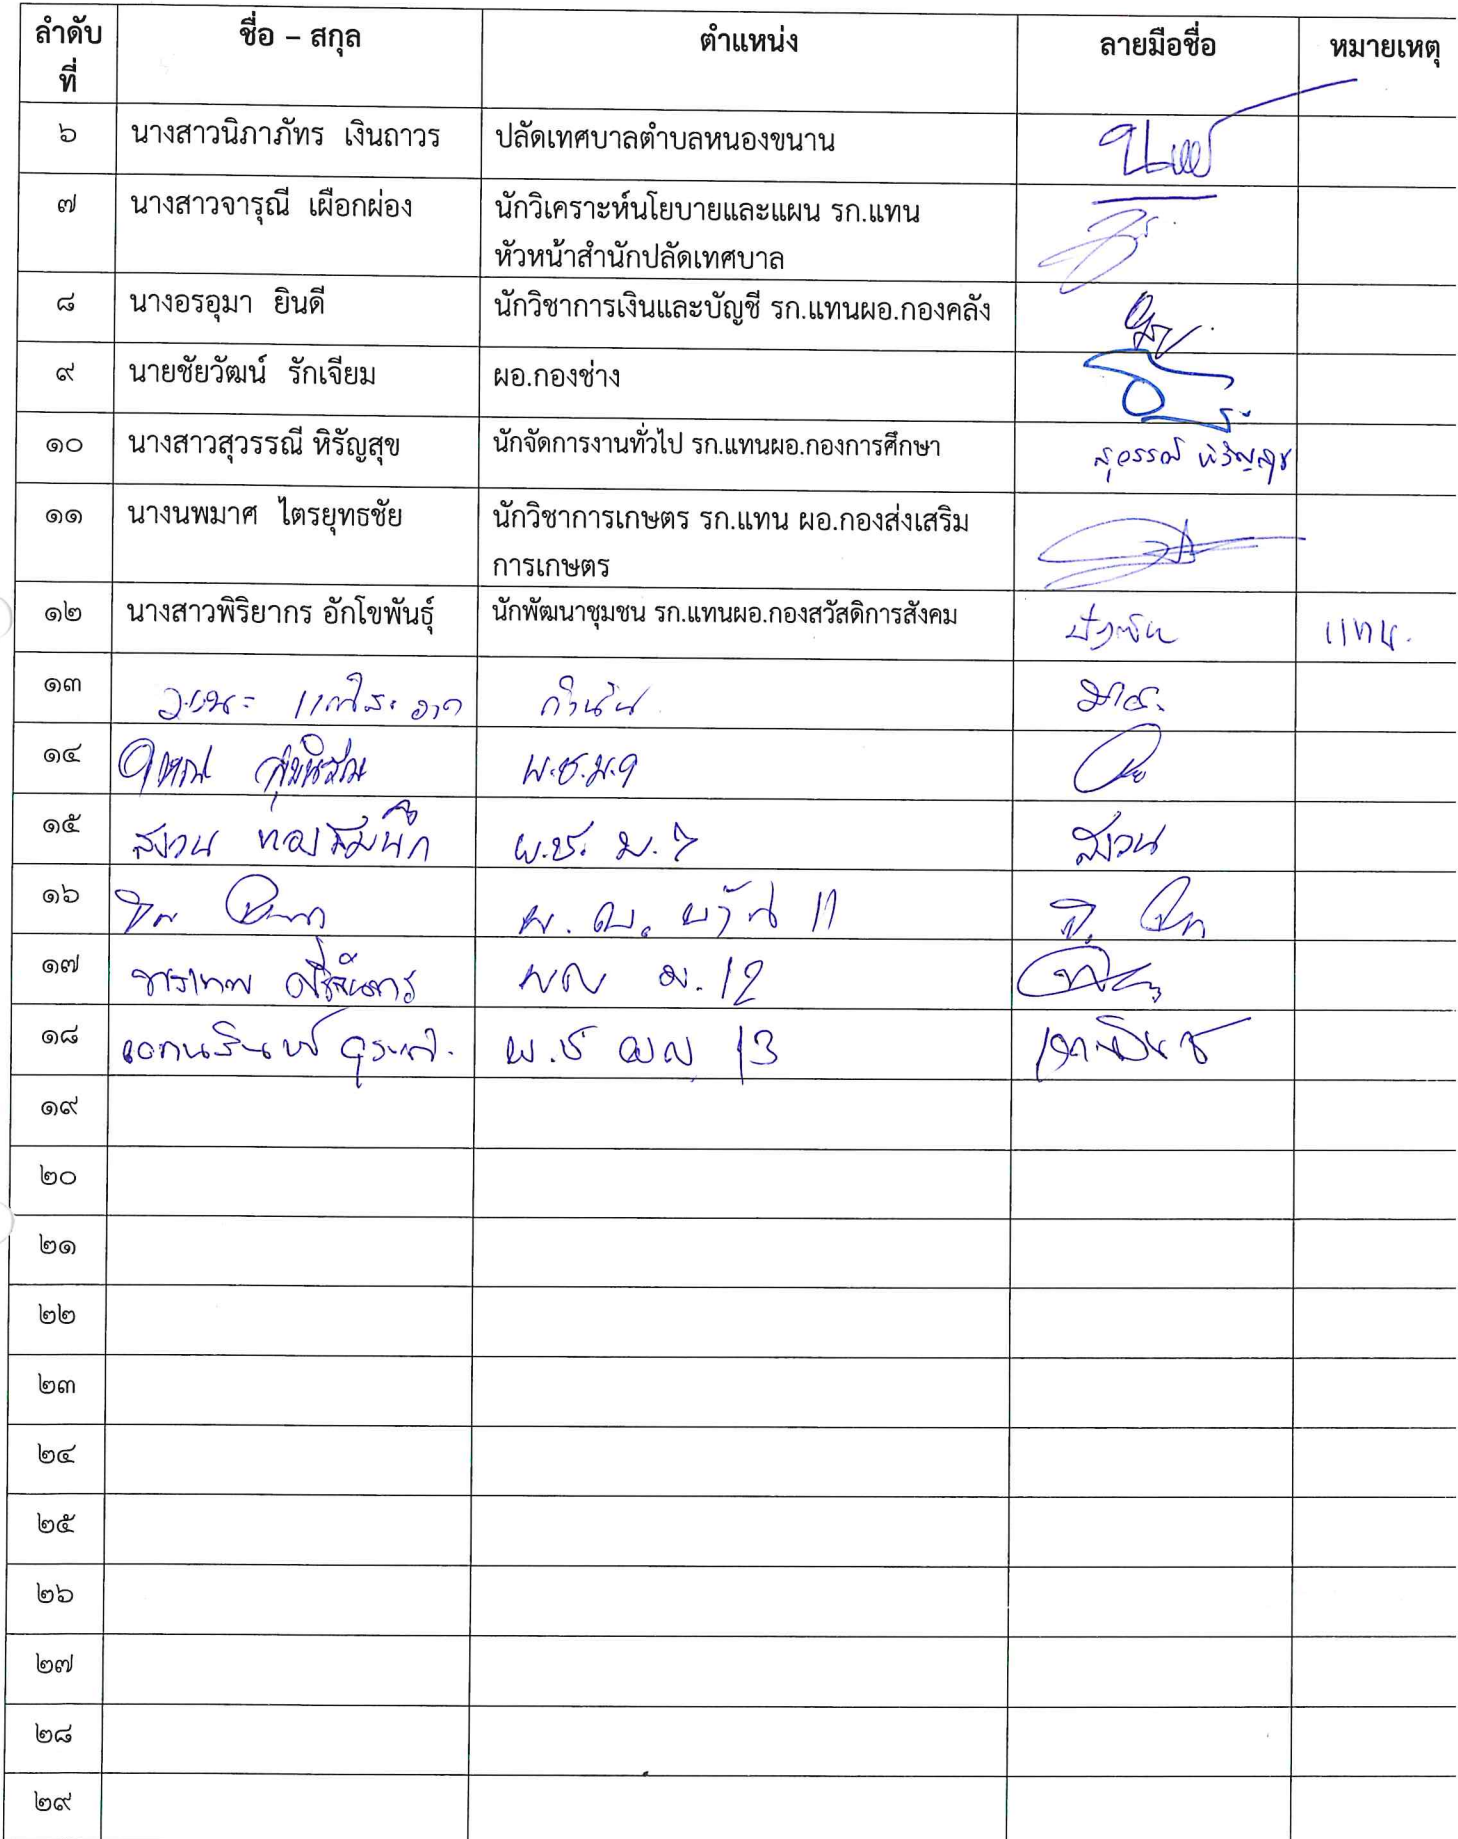 ลำดับ ชื่อ – สกุล ตำแหน่ง ลายมือชื่อ หมายเหตุ
ที่
๖ นางสาวนิภาภัทร เงินถาวร ปลัดเทศบาลตำบลหนองขนาน
๗ นางสาวจารุณี เผือกผ่อง นักวิเคราะห์นโยบายและแผน รก.แทน
หัวหน้าสำนักปลัดเทศบาล
๘ นางอรอุมา ยินดี นักวิชาการเงินและบัญชี รก.แทนผอ.กองคลัง
๙ นายชัยวัฒน์ รักเจียม ผอ.กองช่าง
๑๐ นางสาวสุวรรณี หิรัญสุข นักจัดการงานทั่วไป รก.แทนผอ.กองการศึกษา สุวรรณี หิรัญสุข
๑๑ นางนพมาศ ไตรยุทธชัย นักวิชาการเกษตร รก.แทน ผอ.กองส่งเสริม
การเกษตร
๑๒ นางสาวพิริยากร อักโขพันธุ์ นักพัฒนาชุมชน รก.แทนผอ.กองสวัสดิการสังคม แทน.
๑๓ กำนัน
๑๔ ผ.ช.ม.๑
๑๕ สงวน ผ.ช. ม. 7 สงวน
๑๖
๑๗ ม. 12
๑๘ ผ.ช 13
๑๙
๒๐
๒๑
๒๒
๒๓
๒๔
๒๕
๒๖
๒๗
๒๘
๒๙